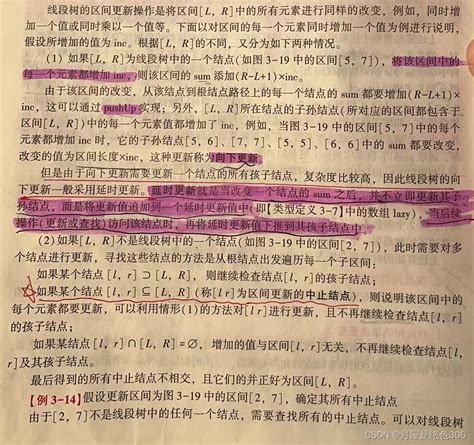 线段树的区间更新操作是将区间[L, R]中的所有元素进行同样的改变，例如，同时增
加一个值或同时乘以一个值等。下面以对区间的每一个元素同时增加一个值为例进行说明，
假设所增加的值为 inc。根据[L, R]的不同，又分为如下两种情况。
(1) 如果[L, R]为线段树中的一个结点(如图 3-19 中的区间[5, 7])，将该区间中的
每一个元素都增加 inc，则该区间的 sum 添加(R-L+1)×inc。
由于该区间的改变，从该结点到根结点路径上的每一个结点的 sum 都要增加(R-L+1)×
inc，这可以通过 pushUp 实现，另外，[L, R]所在结点的子孙结点(所对应的区间都包含于
区间[L, R])中的每一个元素值都增加了 inc，例如，当图 3-19 中的区间[5, 7]中的每个
元素都增加 inc 时，它的子孙结点[5, 6]、[7, 7]、[5, 5]、[6, 6]中的 sum 都要改变，
改变的值为区间长度×inc，这种更新称为向下更新。
但是由于向下更新需要更新一个结点的所有孩子结点，复杂度比较高，因此线段树的向
下更新一般采用延时更新。延时更新就是当改变一个结点的 sum 之后，并不立即更新其子
孙结点，而是将更新值追加到一个延时更新值中(即【类型定义 3-7】中的数组 lazy)，当后续
操作(更新或查找)访问该结点时，再将延时更新值下推到其孩子结点中。
(2) 如果[L, R]不是线段树中的一个结点(如图 3-19 中的区间[2, 7])，此时需要对多
个结点进行更新，寻找这些结点的方法是从根结点出发遍历每一个子区间：
如果某个结点[l, r]⊃[L, R]，则继续检查结点[l, r]的孩子结点；
如果某个结点[l, r]⊆[L, R](称[l r]为区间更新的中止结点)，则说明该区间中的
每个元素都要更新，可以利用情形(1)的方法对[l r]进行更新，且不再继续检查结点[l, r]
的孩子结点；
如果某结点[l, r]∩[L, R]=∅，增加的值与区间[l, r]无关，不再继续检查结点[l,
r]及其孩子结点。
最后得到的所有中止结点不相交，且它们的并正好为区间[L, R]。
【例 3-14】假设更新区间为图 3-19 中的区间[2, 7]，确定其所有中止结点
由于[2, 7]不是线段树中的任何一个结点，需要查找所有的中止结点。可以对线段树
CSDN @月应是绝色306